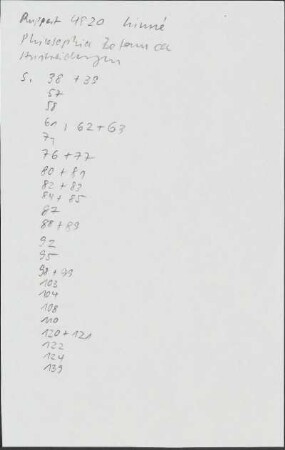 Ruppert 4820 Linné
Philosophia Botanica
Anstreichungen
S. 38 + 39
57
58
61, 62 + 63
71
76 + 77
80 + 81
82 + 83
84 + 85
87
88 + 89
92
95
98 + 99
103
104
108
110
120 + 121
122
124
139